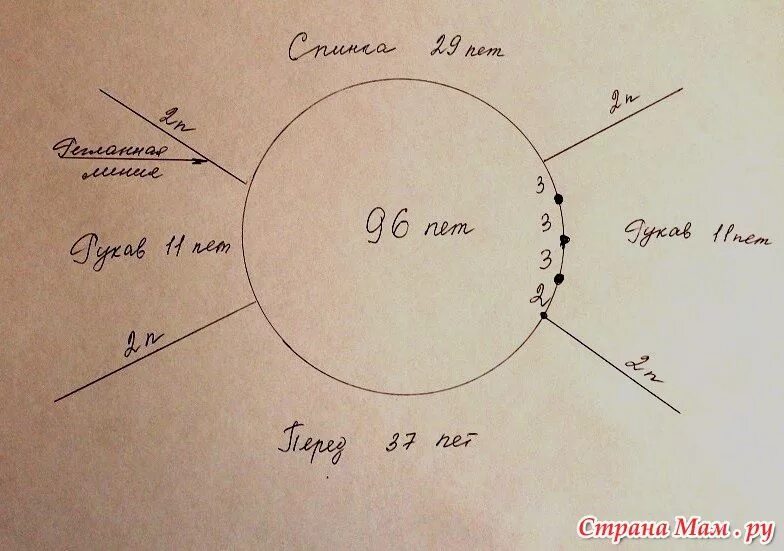 Спинка 29 пет
2п
2п
Регланная
линия
3
96 пет
3
Рукав 11 пет
Рукав 11 пет
3
2
2п
2п
Перед 37 пет
Страна Мам.ру